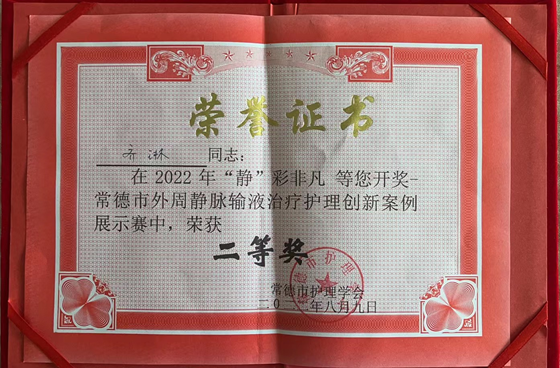 荣誉证书
齐淋 同志：
在2022年“静”彩非凡 等您开奖-
常德市外周静脉输液治疗护理创新案例
展示赛中，荣获
二等奖
常德市护理学会
二〇二二年八月九日
常德市护理学会